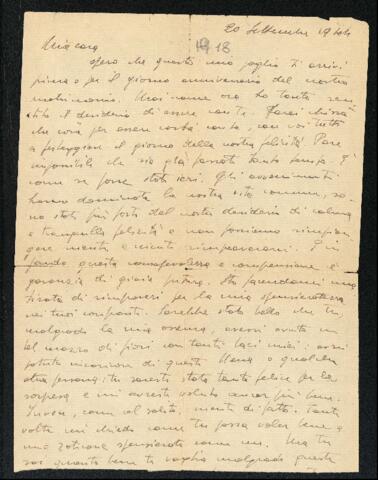 20 Settembre 1944
1918
Mia cara
spero che questo mio foglio ti arrivi
prima o per il giorno anniversario del nostro
matrimonio. Mai come ora ho tanto sen-
tito il desiderio di essere con te. Farei chissà
che cosa per essere costà con te, con voi tutti
a festeggiare il giorno della nostra felicità. Pare
impossibile che sia già passato tanto tempo. È
come se fosse stato ieri. Gli avvenimenti
hanno dominato la nostra vita comune, so-
no stati più forti del nostro desiderio di calma
e tranquilla felicità e non possiamo rimpian-
gere niente e niente rimproverarci. E in
fondo questa consapevolezza e comprensione è
garanzia di gioia futura. Sto facendomi una
tirata di rimproveri per la mia spensieratezza
nei tuoi confronti. Sarebbe stato bello che tu,
malgrado la mia assenza, avessi avuto un
bel mazzo di fiori con tanti baci miei: avrei
potuto incaricare di questo Nena o qualche
altra persona; tu saresti stata tanto felice per la
sorpresa e mi avresti voluto ancor più bene.
Invece, come al solito, niente di fatto. Tante
volte mi chiedo come tu possa voler bene a
uno zoticone spensierato come me. Ma tu
sai quanto bene ti voglio malgrado questo